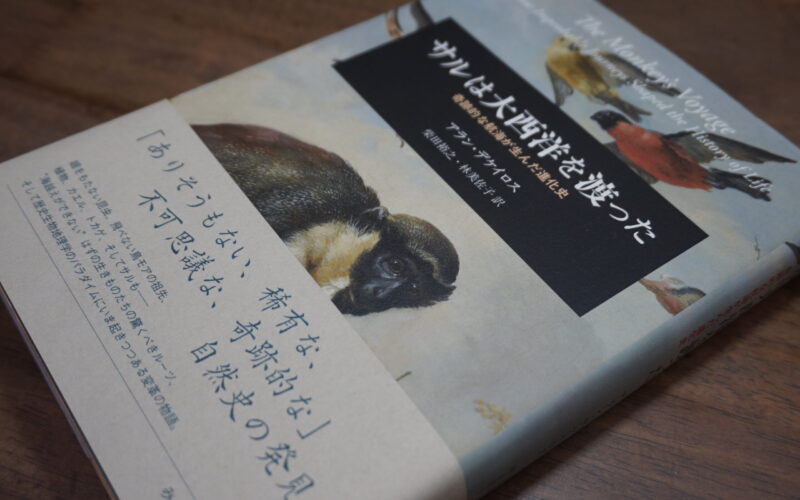 The Monkey's Voyage
Journeys Shaped the History of Life
サルは大西洋を渡った
奇跡的な航海が生んだ進化史
アラン・デケイロス
柴田裕之・林美佐子 訳
「ありそうもない、稀有な、奇跡的な」
不可思議な、自然史の発見
翅をもたない昆虫、飛べない鳥モアの祖先、
植物、カエル、トカゲ、そしてサルも——
"海越えができない"はずの生きものたちの驚くべきルーツ、
そして歴史生物地理学のパラダイムにいま起きつつある変革の物語。
み